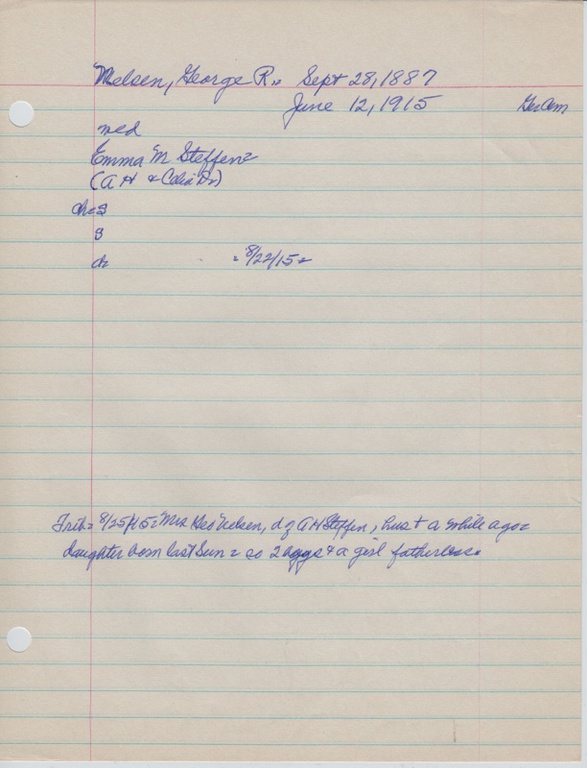 Nelsen, George R. Sept 28, 1887
June 12, 1915 Ger Cem
med
Emma M Steffen =
(A H & Celia Dr)
ch = s
s
d = 8/22/15 =
Trib = 8/25/15 = Mrs Geo Nelsen, d of A H Steffen, hus + a while ago =
daughter born last Sun = so 2 & a girl fatherless.